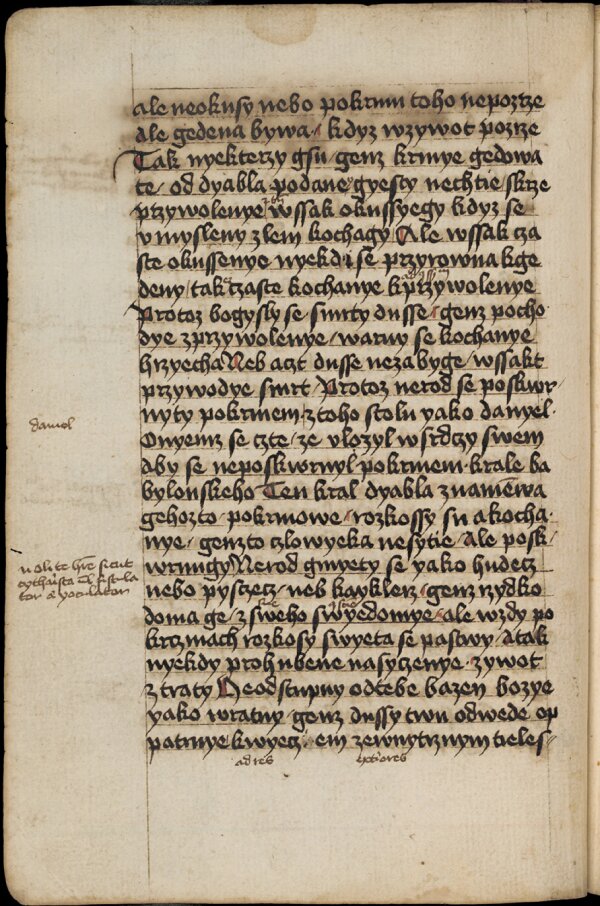 ale neokusy nebo pokrmu toho nepozrze
ale gedena bywa kdyz wzywot pozrze
Tak nyekterzy gsu genz krmye gedowa
te od dyabla podane gyesty nechtie skrze
przywolenye wssak okussyegy kdyz se
v mysleny zlem kochagy Ale wssak cza
ste okussenye nyekdi se przyrowna kge
deny tak czaste kochanye kprzywolenye
Protoz bogysly se smrty dusse genz pocho
dye zprzywolenye warny se kochanye
hrzyecha Neb aczt dusse nezabyge wssakt
przywodye smrt Protoz nerod se poskwr
nyty pokrmem z toho stolu yako danyel
daniel
Onyemz se czte ze vlozyl w srdczy swem
aby se neposkwrnyl pokrmem krale ba
bylonskeho Ten kral dyabla znamena
gehozto pokrmowe rozkossy su a kocha
nye genzto czlowyeka nesytie Ale posk
wrnugy Nerod gmyety se yako hudecz
nebo pysczecz neb kayklerz genz rzydko
doma ge z sweho swyedomye ale wzdy po
krczmach rozkosy swyeta se pastwy A tak
nyekdy prohubene nasyczenye zywot
ztraty Neodstupuy odtebe bazen bozye
yako wratny genz dussy twu odwede op
patrnye kwyecz em zewnytrznym tieles